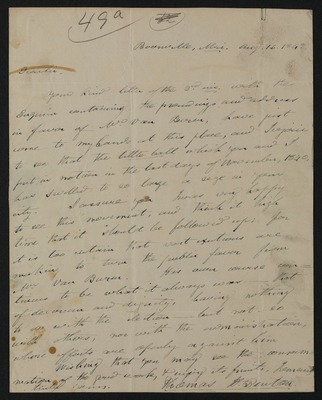 49a
Boonville, Moi. Aug. 16. 1843
Dear Sir,
Your kind letter of the 3d. inst. with the
Enquirer containing the proceedings and address
in favor of Mr. Van Buren, have just
come to my hands at this place, and I rejoice
to see that the little ball which you and I
put in motion in the last days of November, 1840,
has swelled to so large a size in your
city. I assure you I was very happy
to see this movement, and think it high
time that it should be followed up: for
it is too certain that vast exertions are
making to turn the public favor from
Mr. Van Buren. His own course con-
tinues to be what it always was - that
of decorum and dignity, having nothing
to do with the election - but not so
with others, nor with the administration,
whose efforts are openly against him.
Wishing that you may see the consum-
mation of the good work, & enjoy its fruits, I remain
Thomas H. Benton